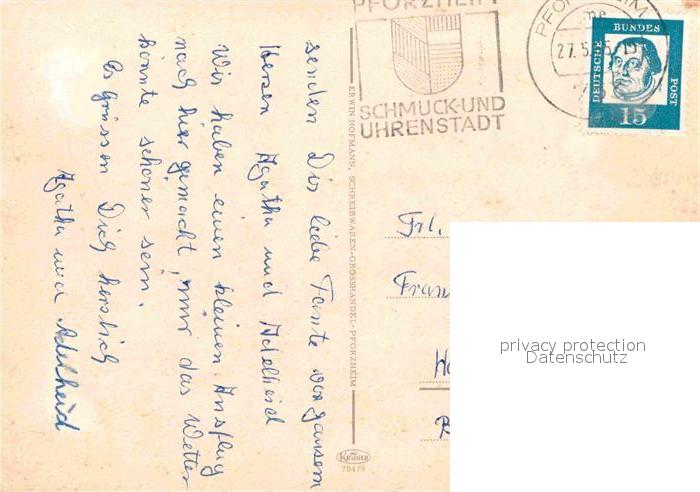 senden Dir liebe Tante von ganzem
Herzen Agatha und Adelheid
Wir haben einen kleinen Ausflug
nach hier gemacht, nur das Wetter
könnte schöner sein.
Es grüssen Dich herzlich
Agatha und Adelheid
ERWIN HOFMANN, SCHREIBWAREN-GROSSHANDEL-PFORZHEIM
KRÜGER
704/9
PFORZHEIM
SCHMUCK-UND
UHRENSTADT
PFORZHEIM
27.5.
DEUTSCHE
BUNDES
POST
15
Frl.
privacy protection
Datenschutz